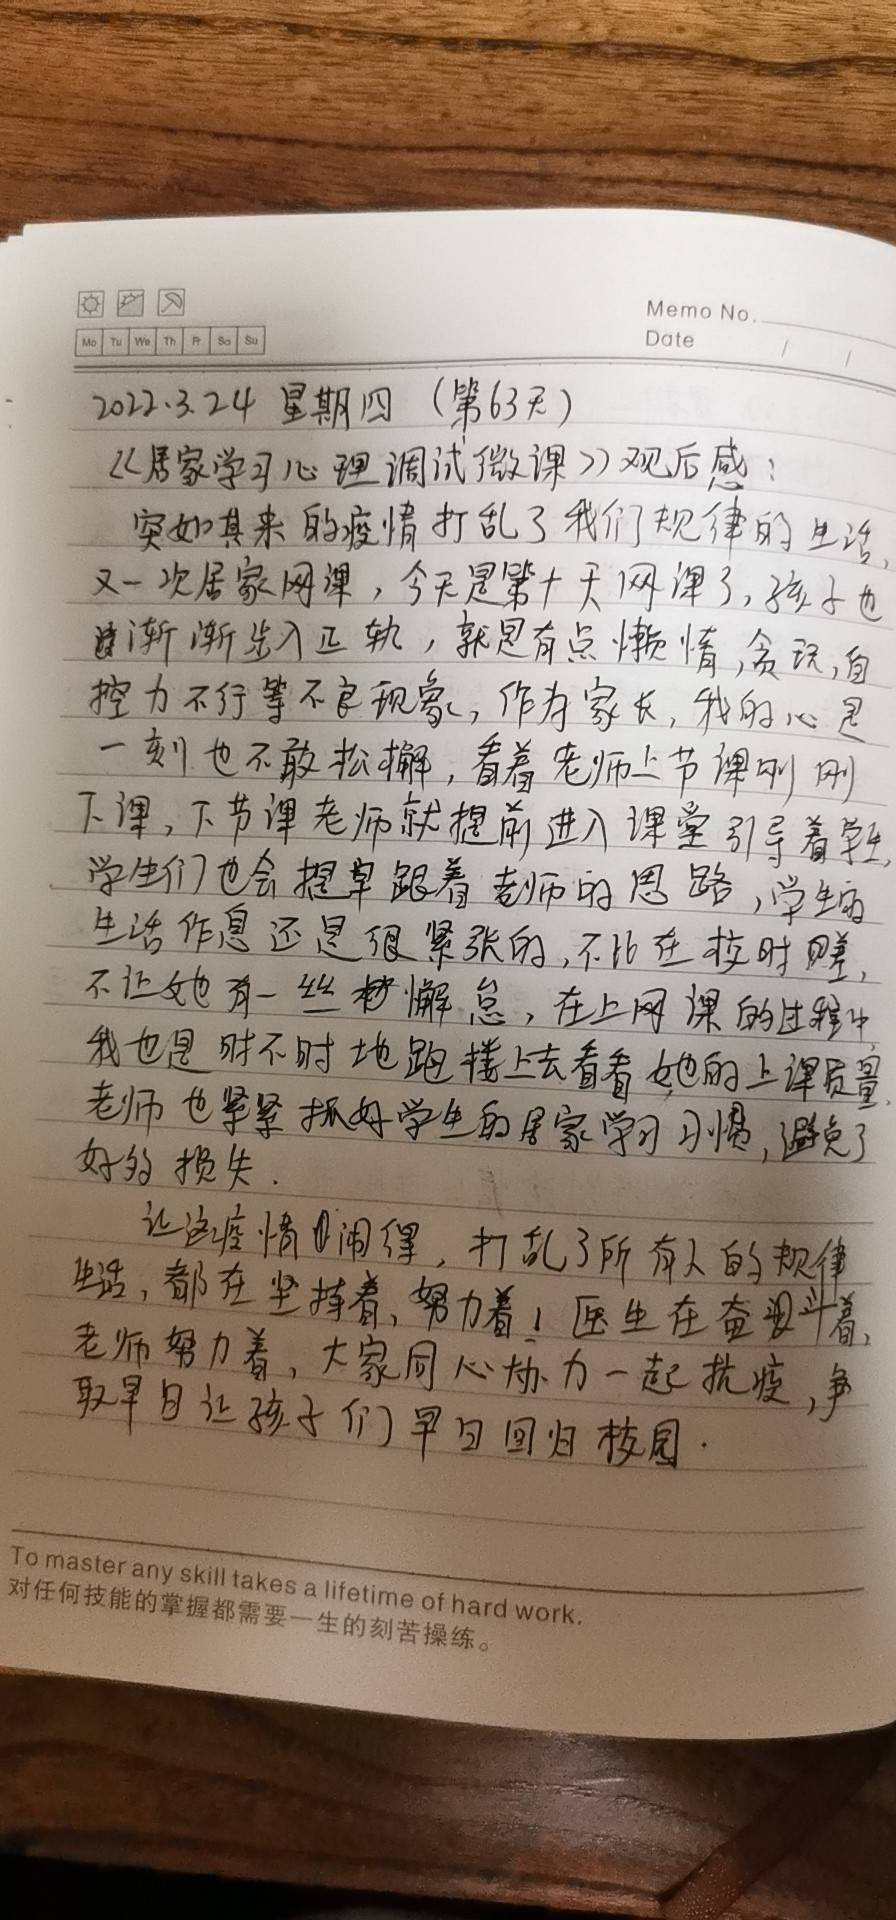 Memo No.
Mo Tu We Th Fr Sa Su
Date / /
2022.3.24 星期四 (第63天)
《居家学习心理调试微课》观后感:
突如其来的疫情打乱了我们规律的生活,
又一次居家网课,今天是第十天网课了,孩子也
渐渐步入正轨,就是有点懒惰,贪玩,自
控力不行等不良现象,作为家长,我的心是
一刻也不敢松懈,看着老师上节课刚刚
下课,下节课老师就提前进入课堂引导着学生,
学生们也会提早跟着老师的思路,学生的
生活作息还是很紧张的,不比在校时差,
不让她有一丝懈怠,在上网课的过程中
我也是时不时地跑楼上去看看她的上课质量,
老师也紧紧抓好学生的居家学习习惯,避免了
好多损失.
让这疫情闹得,打乱了所有人的规律
生活,都在坚持着,努力着!医生在奋斗着,
老师努力着,大家同心协力一起抗疫,争
取早日让孩子们早日回归校园.
To master any skill takes a lifetime of hard work.
对任何技能的掌握都需要一生的刻苦操练。